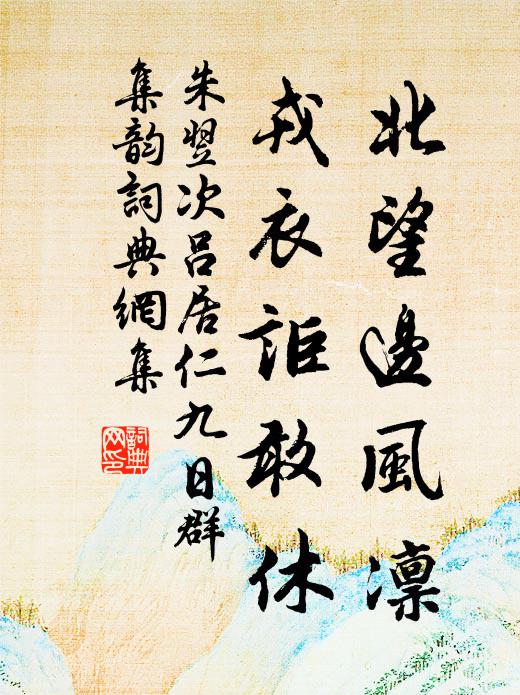 北望邊風凛
戎衣詎敢休
朱翌次呂居仁九日群
集韵詞典網集
詞典
网印